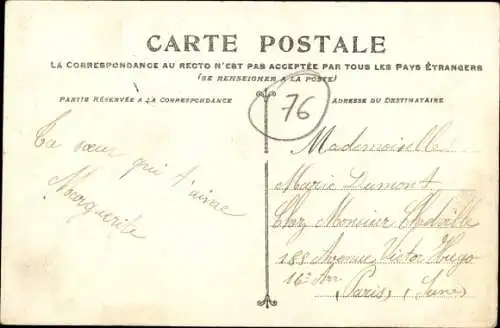 CARTE POSTALE
LA CORRESPONDANCE AU RECTO N'EST PAS ACCEPTÉE PAR TOUS LES PAYS ÉTRANGERS
(SE RENSEIGNER A LA POSTE)
PARTIE RÉSERVÉE A LA CORRESPONDANCE
ADRESSE DU DESTINATAIRE
76
Ta sœur qui t'aime
Marguerite
Mademoiselle
Marie Dumont
Chez Monsieur
188 Avenue Victor Hugo
16e Arr
(Paris) (Seine)